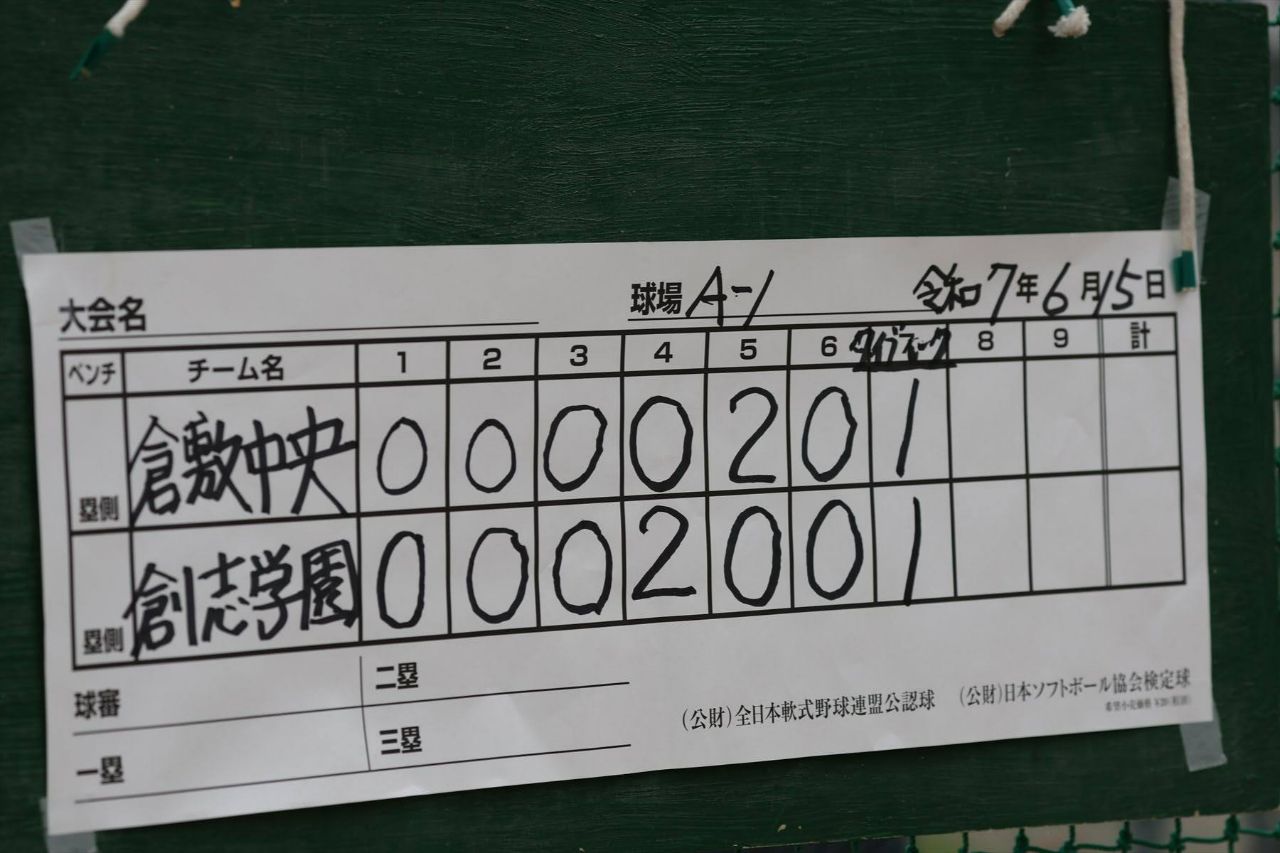 大会名 球場 A-1 令和7年6月15日
ベンチ チーム名 1 2 3 4 5 6 タイブレーク 8 9 計
塁側 倉敷中央 0 0 0 0 2 0 1
塁側 創志学園 0 0 0 2 0 0 1
球審 二塁
一塁 三塁
(公財)全日本軟式野球連盟公認球 (公財)日本ソフトボール協会検定球